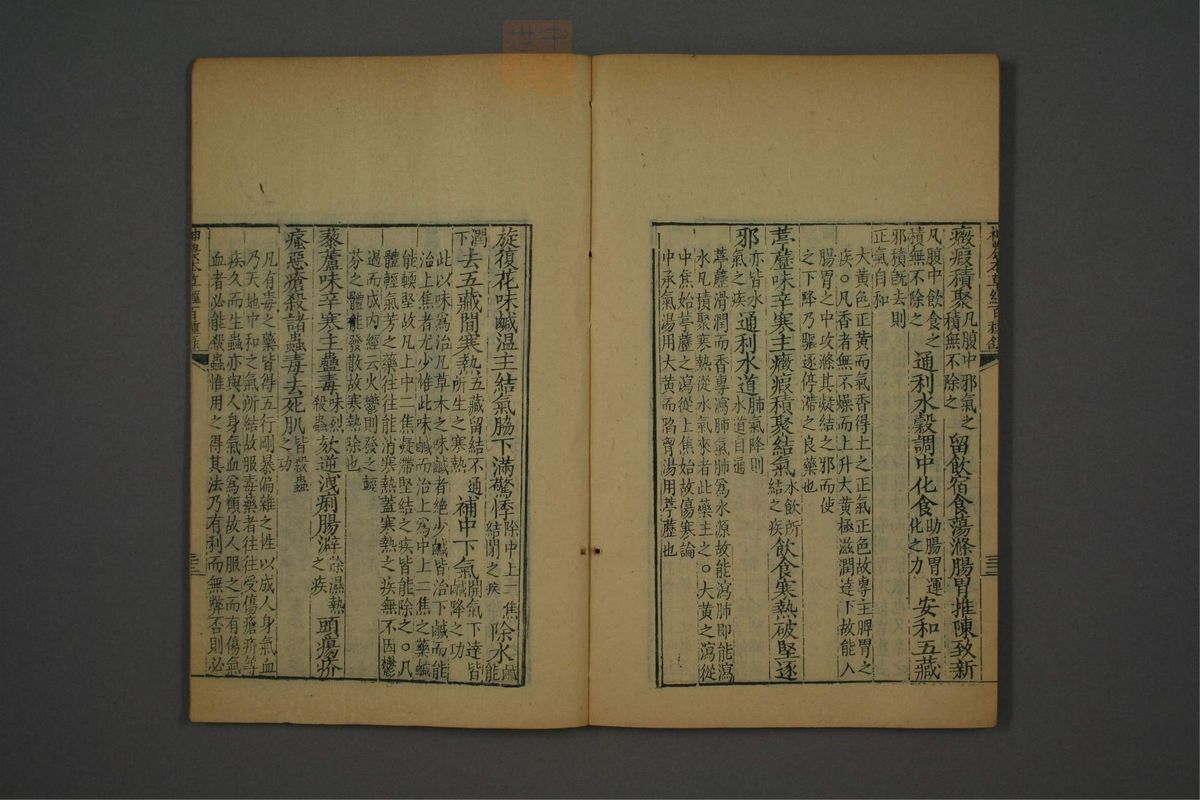 癥瘕積聚凡腹中邪氣之積無不除之留飲宿食蕩滌腸胃推陳致新
凡腹中飲食之積無不除之通利水穀調中化食助腸胃運化之力安和五藏
邪積旣去則正氣自和
大黄色正黄而氣香得土之正氣正色故專主脾胃之
疾○凡香者無不燥而上升大黄極滋潤達下故能入
腸胃之中攻滌其凝結之邪而使
之下降乃驅逐停滯之良藥也
葶藶味辛寒主癥瘕積聚結氣水飲所結之疾飲食寒熱破堅逐
邪亦皆水氣之疾通利水道肺氣降則水道自通
葶藶滑潤而香專瀉肺氣肺爲水源故能瀉肺即能瀉
水凡積聚寒熱從水氣來者此藥主之○大黄之瀉從
中焦始葶藶之瀉從上焦始故傷寒論
中承氣湯用大黄而陷胷湯用葶藶也
旋復花味鹹温主結氣脇下滿驚悸除中上二焦結閉之疾除水鹹能
潤下去五藏間寒熱五藏留結不通所生之寒熱補中下氣開氣下達皆鹹降之功
此以味爲治凡草木之味鹹者絶少鹹皆治下鹹而能
治上焦者尤少惟此味鹹而治上爲中上二焦之藥鹹
能輭堅故凡上中二焦凝滯堅結之疾皆能除之○凡
體輕氣芳之藥往往能消寒熱蓋寒熱之疾無不因鬱
遏而成内經云火鬱則發之輕
芬之體能發散故寒熱除也
藜蘆味辛寒主蠱毒味烈殺蟲欬逆洩痢腸澼除濕熱之疾頭瘍疥
瘙惡瘡殺諸蟲毒去死肌皆殺蟲之功
凡有毒之藥皆得五行剛暴偏雜之性以成人身氣血
乃天地中和之氣所結故服毒藥者往往受傷瘡疥等
疾久而生蟲亦與人身氣血爲類故人服之而有傷氣
血者必能殺蟲惟用之得其法乃有利而無弊否則必